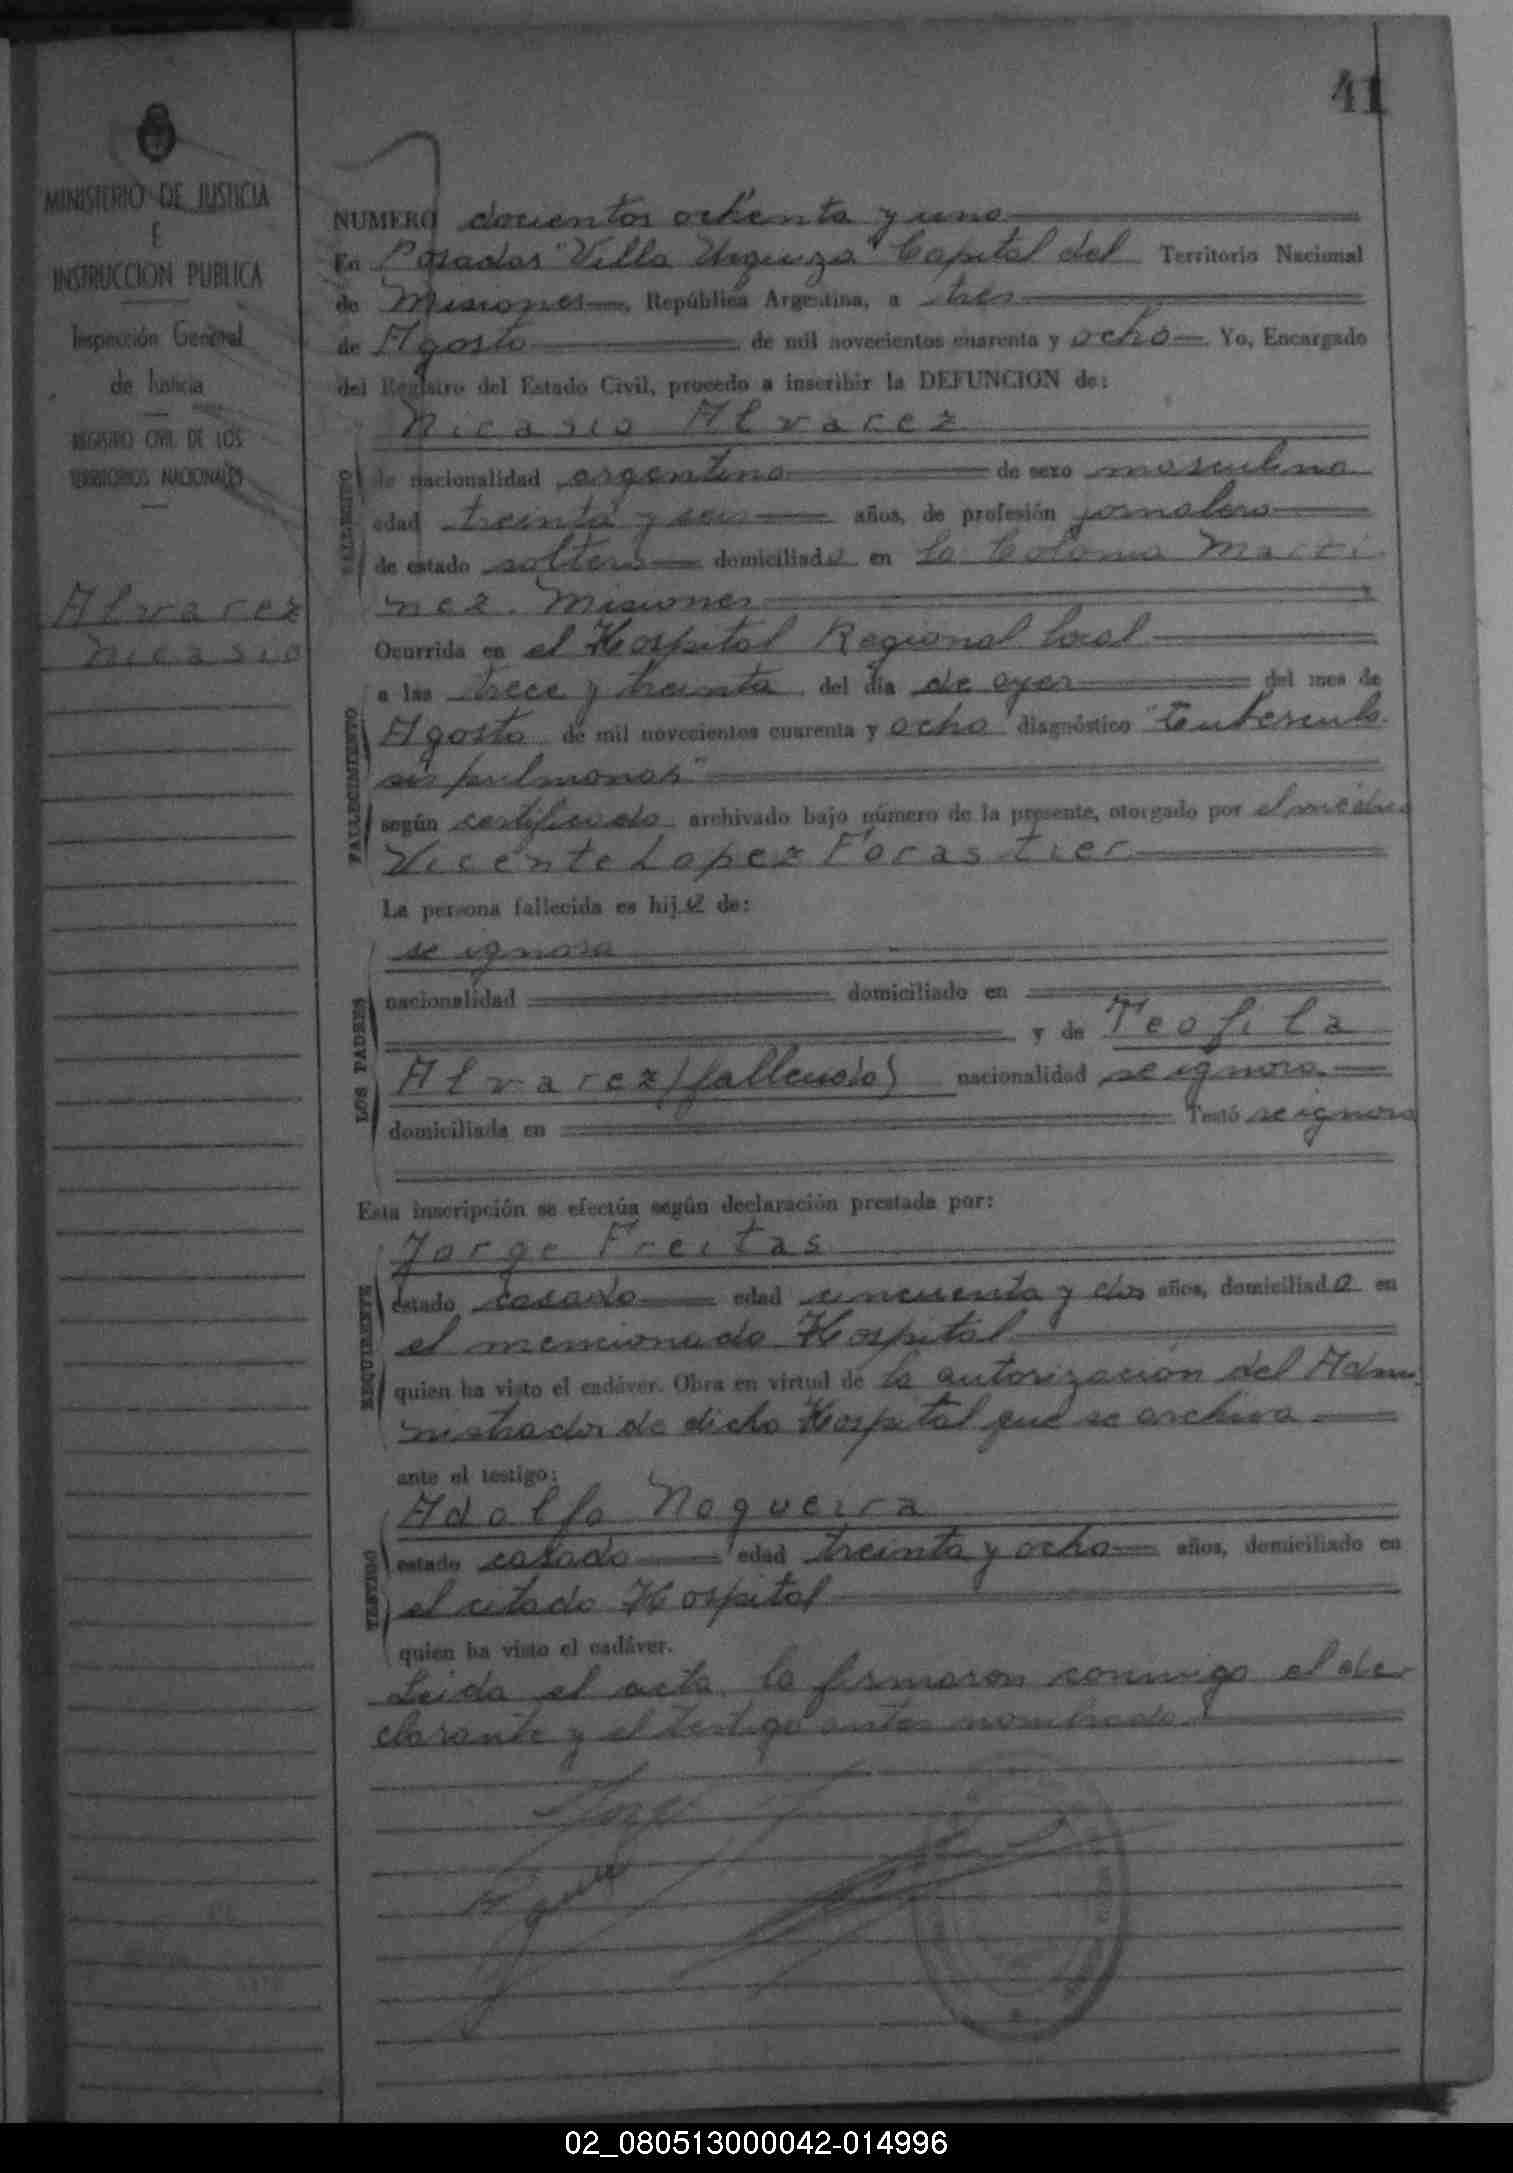 41
MINISTERIO DE JUSTICIA
E
INSTRUCCION PUBLICA
Inspección General
de Justicia
REGISTRO CIVIL DE LOS
TERRITORIOS NACIONALES
Alvarez
Nicasio
NUMERO docientos ochenta y uno
En Posadas "Villa Urquiza" Capital del Territorio Nacional
de Misiones, República Argentina, a tres
de Agosto de mil novecientos cuarenta y ocho Yo, Encargado
del Registro del Estado Civil, procedo a inscribir la DEFUNCION de:
Nicasio Alvarez
FALLECIDO
de nacionalidad argentina de sexo masculino
edad treinta y seis años, de profesión jornalero
de estado soltero domiciliado en la Colonia Marti
nez. Misiones
FALLECIMIENTO
Ocurrida en el Hospital Regional local
a las trece y treinta del día de ayer del mes de
Agosto de mil novecientos cuarenta y ocho diagnóstico "tuberculo
sis pulmonar"
según certificado archivado bajo número de la presente, otorgado por el médico
Vicente Lopez Forastier
La persona fallecida es hijo de:
LOS PADRES
se ignora
nacionalidad domiciliado en
y de Teofila
Alvarez (fallecida) nacionalidad se ignora
domiciliada en Testó se ignora
Esta inscripción se efectúa según declaración prestada por:
REQUIRENTE
Jorge Freitas
estado casado edad cincuenta y dos años, domiciliado en
el mencionado Hospital
quien ha visto el cadáver. Obra en virtud de la autorización del Admi
nistrador de dicho Hospital que se archiva
ante el testigo:
TESTIGO
Adolfo Nogueira
estado casado edad treinta y ocho años, domiciliado en
el citado Hospital
quien ha visto el cadáver.
Leida el acta, la firmaron conmigo el de
clarante y el testigo antes nombrado
02_080513000042-014996